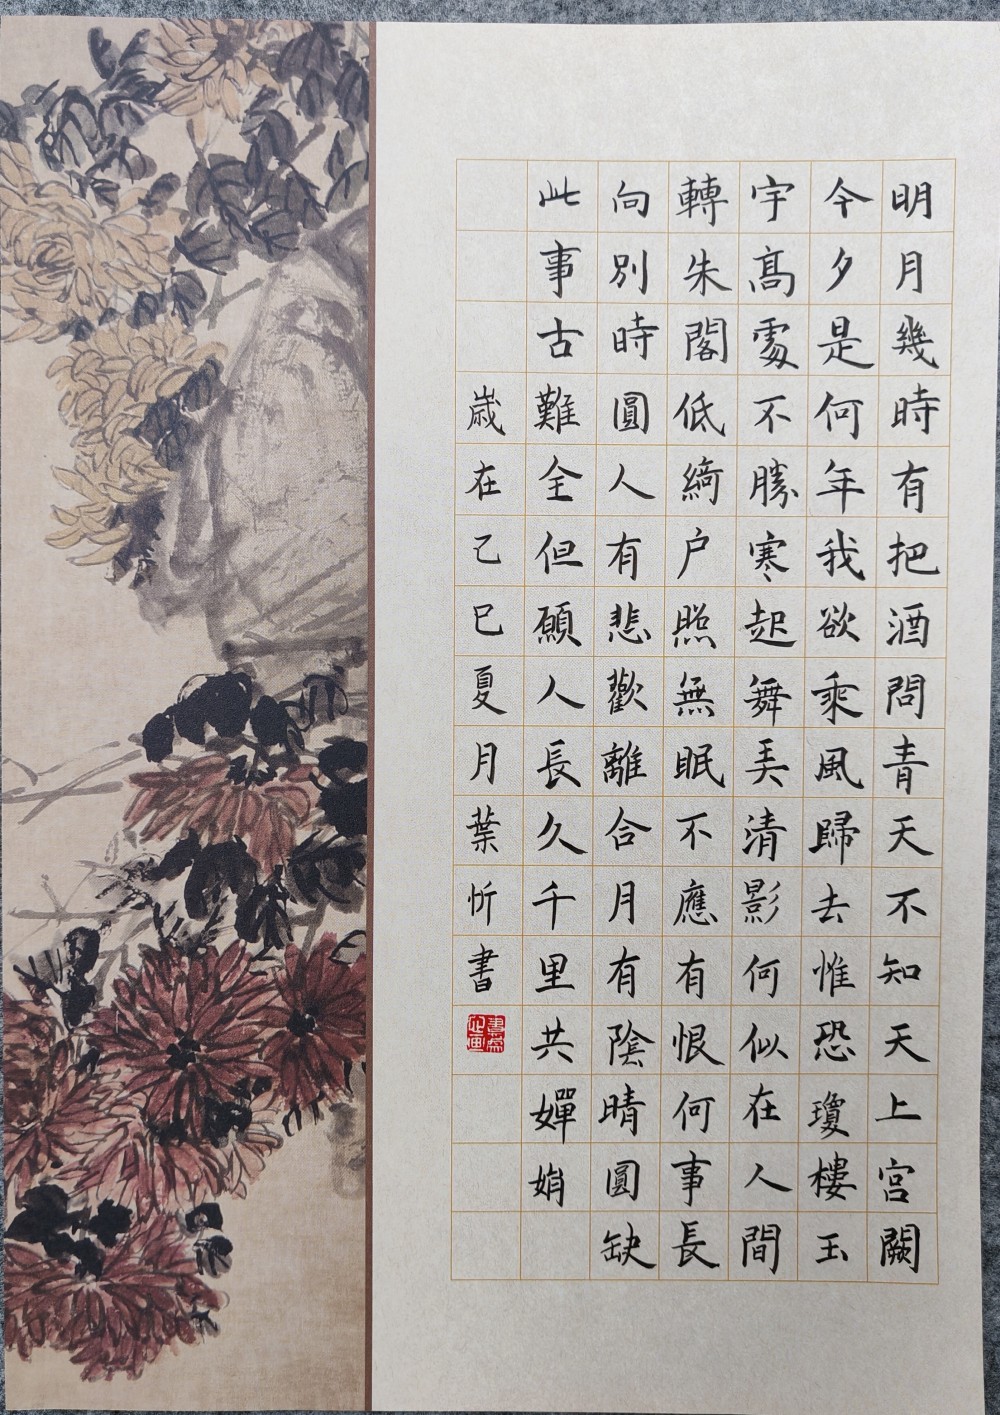 明月幾時有把酒問青天不知天上宮闕
今夕是何年我欲乘風歸去惟恐瓊樓玉
宇髙處不勝寒起舞弄清影何似在人間
轉朱閣低綺户照無眠不應有恨何事長
向別時圓人有悲歡離合月有陰晴圓缺
此事古難全但願人長久千里共嬋娟
歲在乙巳夏月葉忻書
書為心画